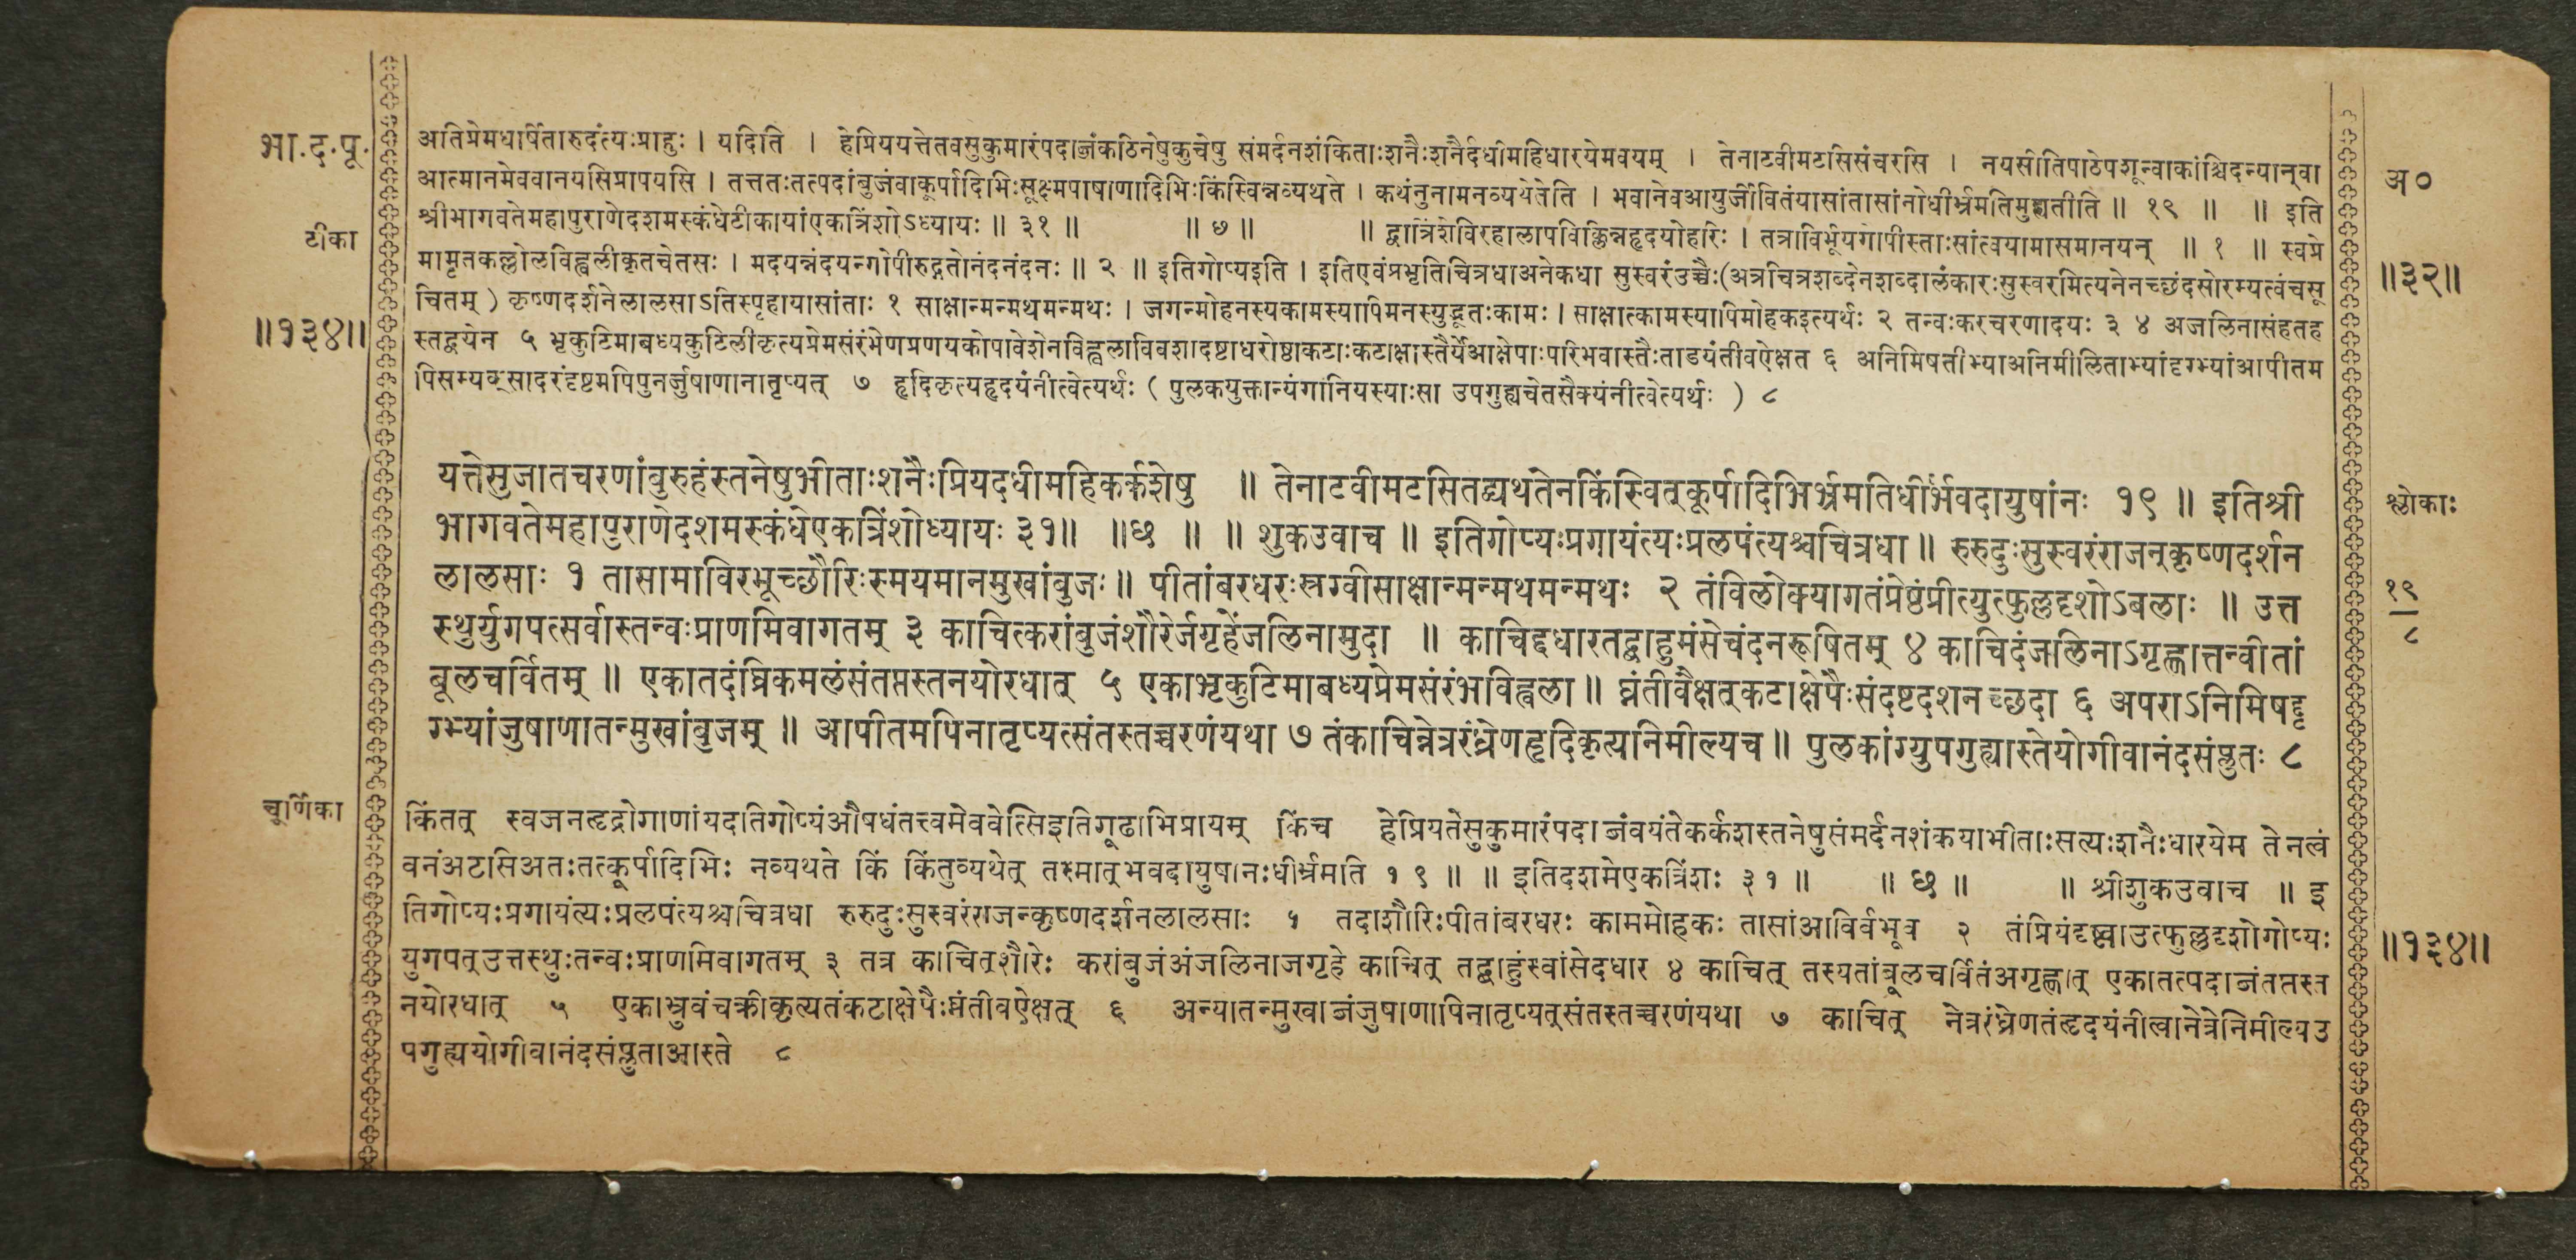 भा.द.पू.
अतिप्रेमधर्षितारुदंत्यःप्राहुः । यदिति । हेप्रिययत्तेतवसुकुमारंपदाब्जंकठिनेषुकुचेषु संमर्दनशंकिताःशनैःशनैर्दधीमहिधारयेमवयम् । तेनाटवीमटसिसंचरसि । नयसीतिपाठेपशून्वाकांश्चिदन्यान्वा
आत्मानमेववानयसिप्रापयसि । तत्ततःतत्पदांबुजंवाकूर्पादिभिःसूक्ष्मपाषाणादिभिःकिंस्विन्नव्यथते । कथंनुनामनव्यथेतेति । भवानेवआयुर्जीवितंयासांतासांनोधीर्भ्रमतिमुह्यतीति ॥ १९ ॥ ॥ इति
श्रीभागवतेमहापुराणेदशमस्कंधेटीकायांएकत्रिंशोऽध्यायः ॥ ३१ ॥ ॥ ७ ॥ ॥ द्वात्रिंशेविरहालापविक्लिन्नहृदयोहरिः । तत्राविर्भूयगोपीस्ताःसांत्वयामासमानयन् ॥ १ ॥ स्वप्रे
मामृतकल्लोलविह्वलीकृतचेतसः । मदयन्नंदयन्गोपीरुद्गतोनंदनंदनः ॥ २ ॥ इतिगोप्यइति । इतिएवंप्रभृतिचित्रधाअनेकधा सुस्वरंउच्चैः(अत्रचित्रशब्देनशब्दालंकारःसुस्वरमित्यनेनच्छंदसोरम्यत्वंचसू
चितम् ) कृष्णदर्शनेलालसाऽतिस्पृहायासांताः १ साक्षान्मन्मथमन्मथः । जगन्मोहनस्यकामस्यापिमनस्युद्भूतःकामः । साक्षात्कामस्यापिमोहकइत्यर्थः २ तन्वःकरचरणादयः ३ ४ अजलिनासंहतह
स्तद्वयेन ५ भृकुटिमाबध्यकुटिलीकृत्यप्रेमसंरंभेणप्रणयकोपावेशेनविह्वलाविवशादष्टाधरोष्ठाकटाःकटाक्षास्तैर्येआक्षेपाःपरिभवास्तैःताडयंतीवऐक्षत ६ अनिमिषतीभ्याअनिमीलिताभ्यांदृग्भ्यांआपीतम
पिसम्यक्सादरंदृष्टमपिपुनर्जुषाणानातृप्यत् ७ हृदिकृत्यहृदयंनीत्वेत्यर्थः ( पुलकयुक्तान्यंगानियस्याःसा उपगुह्यचेतसैक्यंनीत्वेत्यर्थः ) ८
टीका
॥१३४॥
अ०
॥३२॥
यत्तेसुजातचरणांबुरुहंस्तनेषुभीताःशनैःप्रियदधीमहिकर्कशेषु ॥ तेनाटवीमटसितद्व्यथतेनकिंस्वित्कूर्पादिभिर्भ्रमतिधीर्भवदायुषांनः १९ ॥ इतिश्री
भागवतेमहापुराणेदशमस्कंधेएकत्रिंशोध्यायः ३१॥ ॥छ ॥ ॥ शुकउवाच ॥ इतिगोप्यःप्रगायंत्यःप्रलपंत्यश्चचित्रधा ॥ रुरुदुःसुस्वरंराजन्कृष्णदर्शन
लालसाः १ तासामाविरभूच्छौरिःस्मयमानमुखांबुजः ॥ पीतांबरधरःस्रग्वीसाक्षान्मन्मथमन्मथः २ तंविलोक्यागतंप्रेष्ठंप्रीत्युत्फुल्लदृशोऽबलाः ॥ उत्त
स्थुर्युगपत्सर्वास्तन्वःप्राणमिवागतम् ३ काचित्करांबुजंशौरेर्जगृहेंजलिनामुदा ॥ काचिद्दधारतद्बाहुमंसेचंदनरूषितम् ४ काचिदंजलिनाऽगृह्णात्तन्वीतां
बूलचर्वितम् ॥ एकातदंघ्रिकमलंसंतप्तस्तनयोरधात् ५ एकाभ्रुकुटिमाबध्यप्रेमसंरंभविह्वला ॥ घ्नंतीवैक्षत्कटाक्षेपैःसंदष्टदशनच्छदा ६ अपराऽनिमिषदृ
ग्भ्यांजुषाणातन्मुखांबुजम् ॥ आपीतमपिनातृप्यत्संतस्तच्चरणंयथा ७ तंकाचिन्नेत्ररंध्रेणहृदिकृत्यनिमील्यच ॥ पुलकांग्युपगुह्यास्तेयोगीवानंदसंप्लुतः ८
श्लोकाः
१९
८
चूर्णिका
किंतत् स्वजनहृद्रोगाणांयदतिगोप्यंऔषधंतत्त्वमेववेत्सिइतिगूढाभिप्रायम् किंच हेप्रियतेसुकुमारंपदाब्जंवयंतेकर्कशस्तनेषुसंमर्दनशंकयाभीताःसत्यःशनैःधारयेम तेनत्वं
वनंअटसिअतःतत्कूर्पादिभिः नव्यथते किं किंतुव्यथेत् तस्मात्भवदायुषांनःधीर्भ्रमति १९ ॥ ॥ इतिदशमेएकत्रिंशः ३१ ॥ ॥ छ ॥ ॥ श्रीशुकउवाच ॥ इ
तिगोप्यःप्रगायंत्यःप्रलपंत्यश्चचित्रधा रुरुदुःसुस्वरंराजन्कृष्णदर्शनलालसाः १ तदाशौरिःपीतांबरधरः काममोहकः तासांआविर्बभूव २ तंप्रियंदृष्ट्वाउत्फुल्लदृशोगोप्यः
युगपत्उत्तस्थुःतन्वःप्राणमिवागतम् ३ तत्र काचित्शौरेः करांबुजंअंजलिनाजगृहे काचित् तद्बाहुंस्वांसेदधार ४ काचित् तस्यतांबूलचर्वितंअगृह्णात् एकातत्पदाब्जंतप्तस्त
नयोरधात् ५ एकाभ्रुवंचक्रीकृत्यतंकटाक्षेपैःघ्नंतीवऐक्षत् ६ अन्यातन्मुखाब्जंजुषाणापिनातृप्यत्संतस्तच्चरणंयथा ७ काचित् नेत्ररंध्रेणतंहृदयंनीत्वानेत्रेनिमील्यउ
पगुह्ययोगीवानंदसंप्लुताआस्ते ८
॥१३४॥